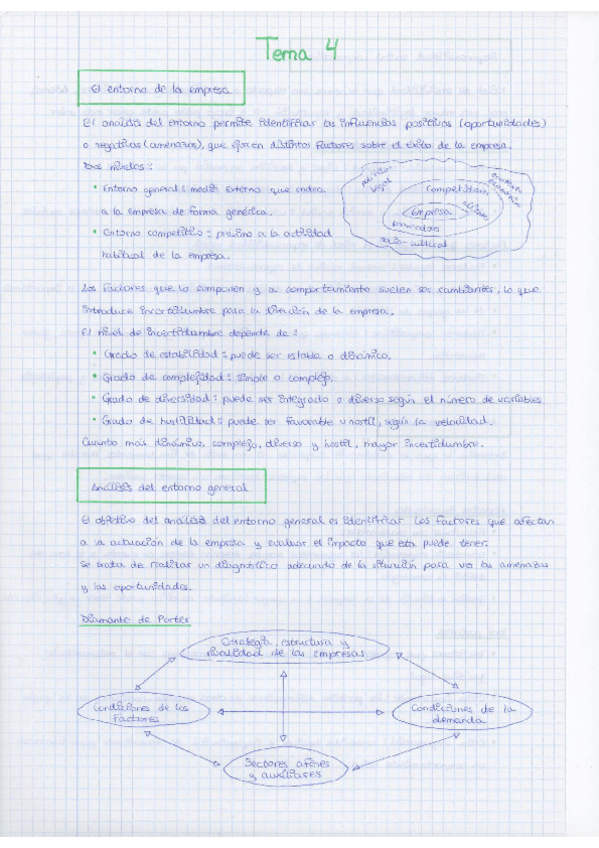 Tema 4
El entorno de la empresa
El análisis del entorno permite identificar las influencias positivas (oportunidades)
o negativas (amenazas), que ejercen distintos factores sobre el éxito de la empresa.
Dos niveles:
• Entorno general: medio externo que rodea
a la empresa de forma genérica.
• Entorno competitivo: próximo a la actividad
habitual de la empresa.
político-legal
económico
Competidores
Empresa
clientes
proveedores
socio-cultural
Los factores que lo componen y su comportamiento suelen ser cambiantes, lo que
introduce incertidumbre para la dirección de la empresa.
El nivel de incertidumbre depende de:
• Grado de estabilidad: puede ser estable o dinámico.
• Grado de complejidad: simple o complejo.
• Grado de diversidad: puede ser integrado o diverso según el número de variables
• Grado de hostilidad: puede ser favorable u hostil, según la velocidad.
Cuanto más dinámico, complejo, diverso y hostil, mayor incertidumbre.
Análisis del entorno general
El objetivo del análisis del entorno general es identificar los factores que afectan
a la actuación de la empresa y evaluar el impacto que esta puede tener.
Se trata de realizar un diagnóstico adecuado de la situación para ver las amenazas
y las oportunidades.
Diamante de Porter
Estrategia, estructura y
rivalidad de las empresas
Condiciones de los
factores
Condiciones de la
demanda
Sectores afines
y auxiliares